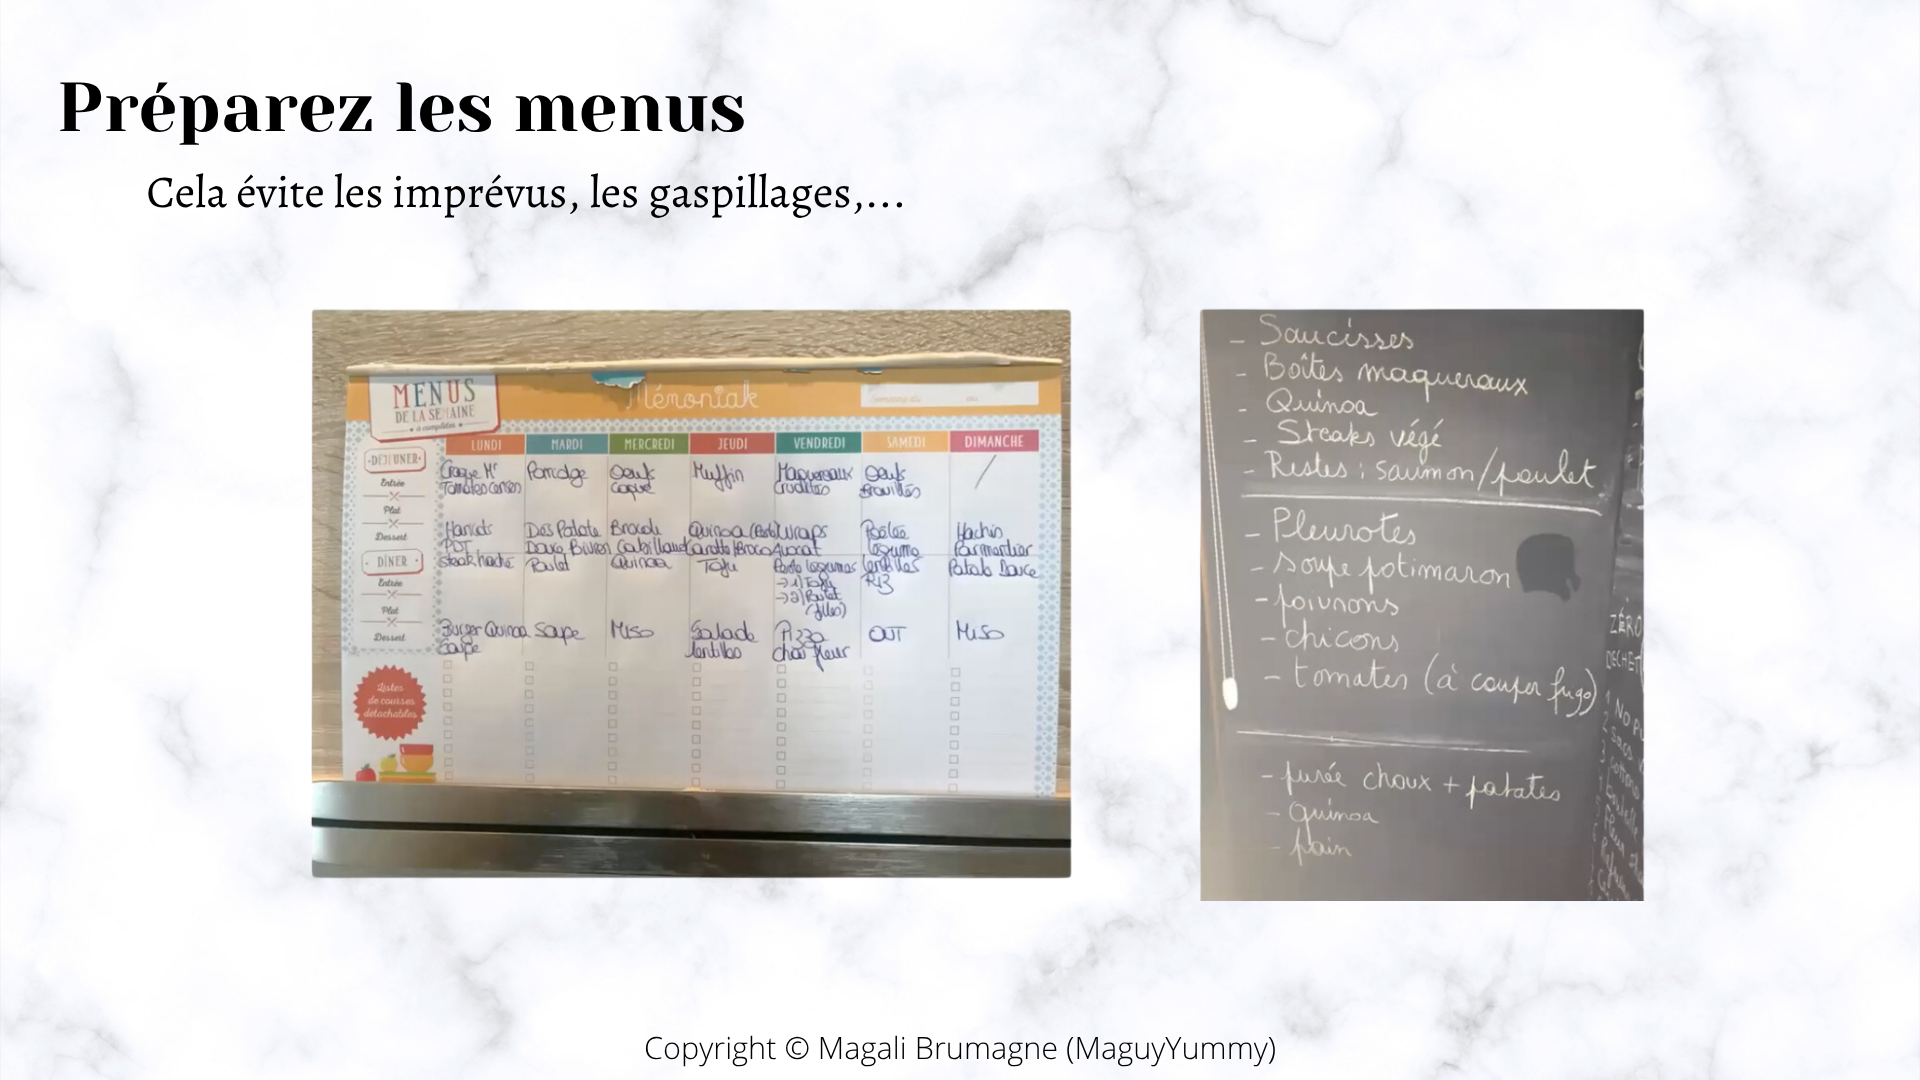 Préparez les menus
Cela évite les imprévus, les gaspillages,...
MENUS
DE LA SEMAINE
à compléter
Mémoniak
LUNDI MARDI MERCREDI JEUDI VENDREDI SAMEDI DIMANCHE
DÉJEUNER
Entrée
Plat
Dessert
DÎNER
Entrée
Plat
Dessert
Croque Mr
Tomates cerises
Haricots
PDT
steak haché
Burger Quinoa
Soupe
Porridge
Des Patate
Douce
Poulet
Soupe
Oeufs
Coque
Brocole
Cabillaud
Quinoa
Miso
Muffin
Quinoa
Carotte/Broco
Tofu
Salade
lentilles
Maquereaux
crudités
Wraps
Avocat
Pasta legumes
→1) Tofu
→2) Poulet
(files)
Pizza
chou fleur
Oeufs
Brouillés
Poêlée
legume
lentilles
Riz
OUT
/
Hachis
Parmentier
Patate Douce
Miso
Listes
de courses
détachables
- Saucisses
- Boîtes maquereaux
- Quinoa
- Steaks végé
- Restes : saumon/poulet
- Pleurotes
- soupe potimaron
- poivrons
- chicons
- tomates (à couper fugo)
- purée choux + patates
- quinoa
- pain
ZÉRO
DECHET
1 NO
2 sacs
3
Copyright © Magali Brumagne (MaguyYummy)